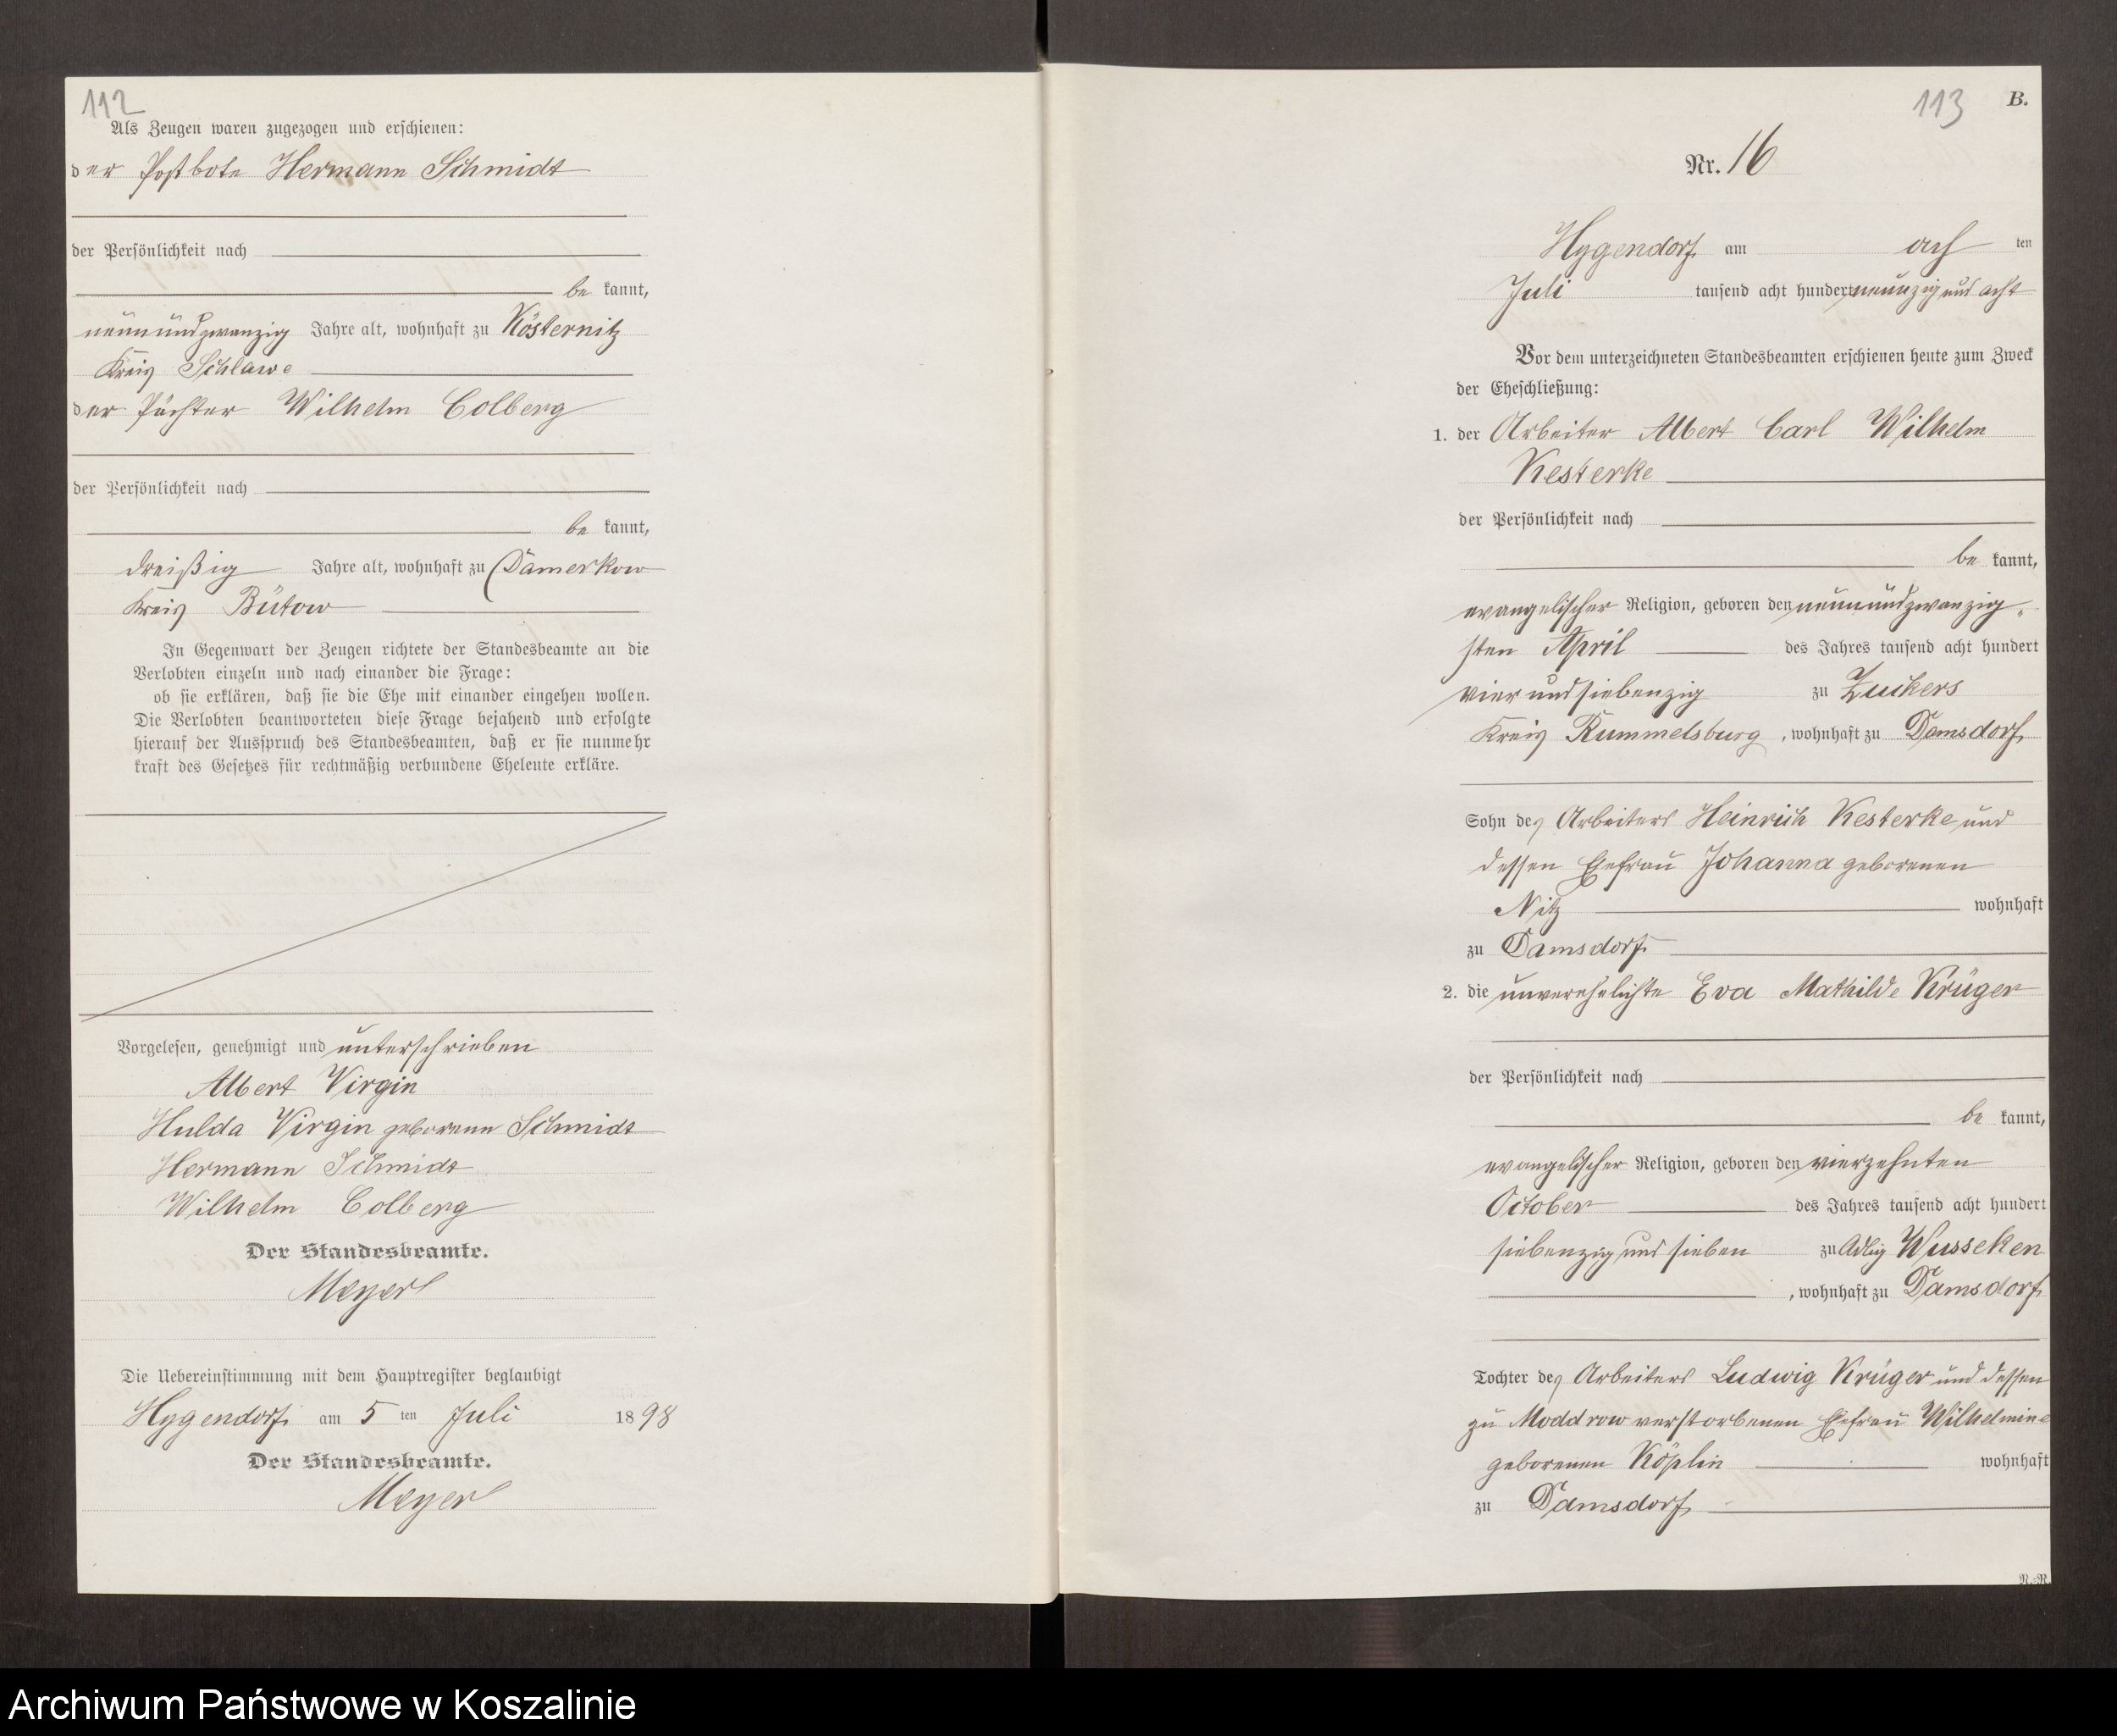 112
Als Zeugen waren zugezogen und erschienen:
der Postbote Hermann Schmidt
der Persönlichkeit nach
be kannt,
neunundzwanzig Jahre alt, wohnhaft zu Kösternitz
Kreis Schlawe
der Pächter Wilhelm Colberg
der Persönlichkeit nach
be kannt,
dreißig Jahre alt, wohnhaft zu Damerkow
Kreis Bütow
In Gegenwart der Zeugen richtete der Standesbeamte an die
Verlobten einzeln und nach einander die Frage:
ob sie erklären, daß sie die Ehe mit einander eingehen wollen.
Die Verlobten beantworteten diese Frage bejahend und erfolgte
hierauf der Ausspruch des Standesbeamten, daß er sie nunmehr
kraft des Gesetzes für rechtmäßig verbundene Eheleute erkläre.
Vorgelesen, genehmigt und unterschrieben
Albert Virgin
Hulda Virgin geborene Schmidt
Hermann Schmidt
Wilhelm Colberg
Der Standesbeamte.
Meyer
Die Uebereinstimmung mit dem Hauptregister beglaubigt
Hygendorf am 5 ten Juli 1898
Der Standesbeamte.
Meyer
113 B.
Nr. 16
Hygendorf am ach ten
Juli tausend acht hundert neunzig und acht
Vor dem unterzeichneten Standesbeamten erschienen heute zum Zweck
der Eheschließung:
1. der Arbeiter Albert Carl Wilhelm
Kesterke
der Persönlichkeit nach
be kannt,
evangelischer Religion, geboren den neunundzwanzig-
sten April des Jahres tausend acht hundert
vier und siebenzig zu Zuckers
Kreis Rummelsburg, wohnhaft zu Damsdorf
Sohn des Arbeiters Heinrich Kesterke und
dessen Ehefrau Johanna geborenen
Nitz wohnhaft
zu Damsdorf
2. die unverehelichte Eva Mathilde Krüger
der Persönlichkeit nach
be kannt,
evangelischer Religion, geboren den vierzehnten
October des Jahres tausend acht hundert
siebenzig und sieben zu Adlig Wusseken
, wohnhaft zu Damsdorf
Tochter des Arbeiters Ludwig Krüger und dessen
zu Moddrow verstorbenen Ehefrau Wilhelmine
geborenen Köplin wohnhaft
zu Damsdorf
Archiwum Państwowe w Koszalinie